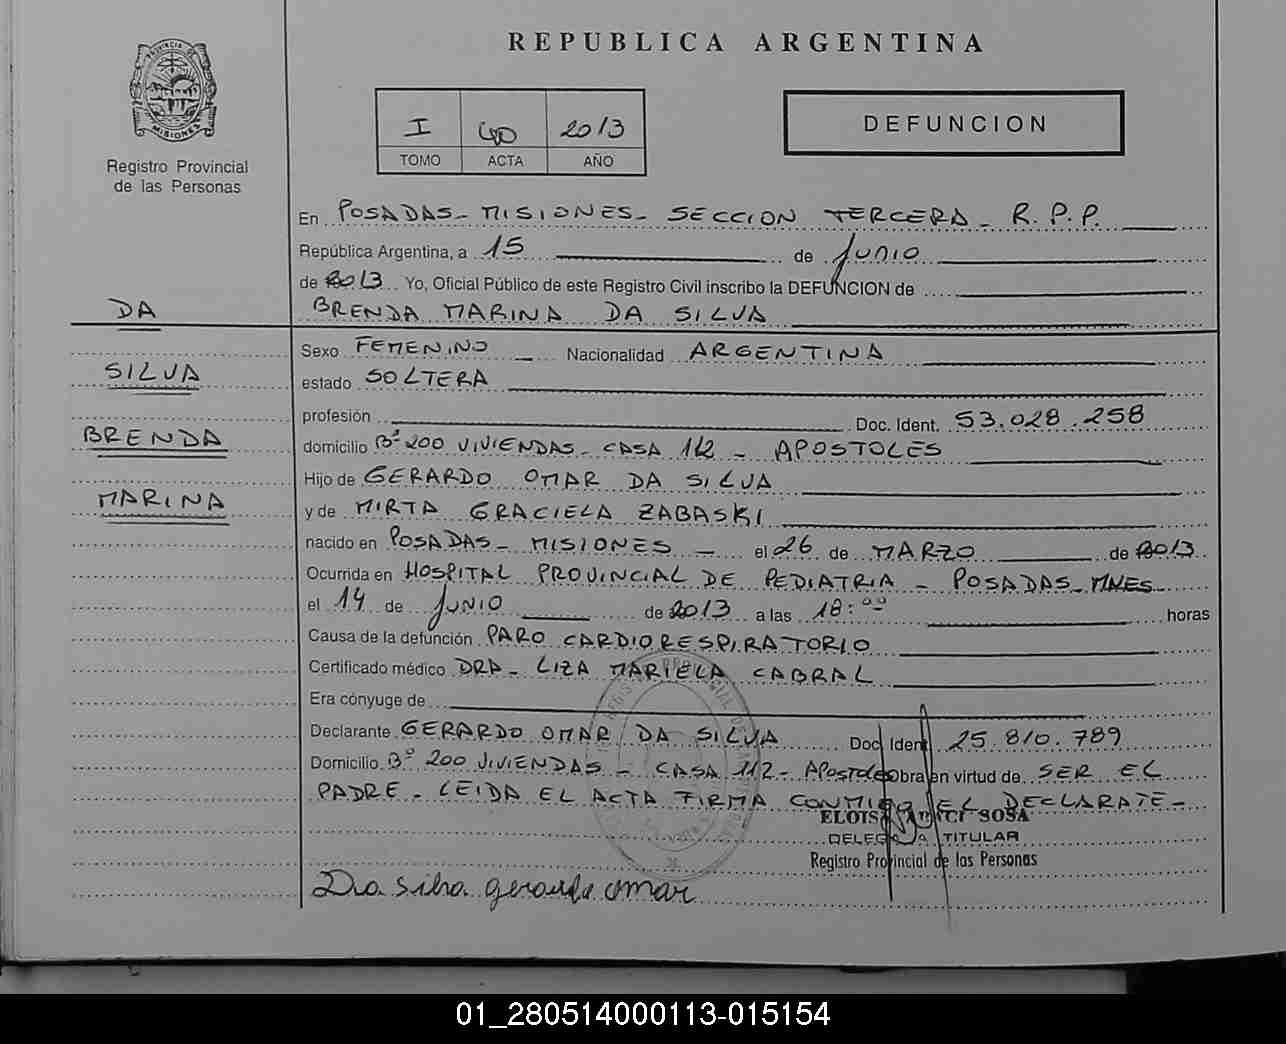 REPUBLICA ARGENTINA
PROVINCIA DE
MISIONES
Registro Provincial
de las Personas
I 40 2013
TOMO ACTA AÑO
DEFUNCION
En POSADAS - MISIONES - SECCION TERCERA - R.P.P.
República Argentina, a 15 de Junio
de 2013 Yo, Oficial Público de este Registro Civil inscribo la DEFUNCION de
BRENDA MARINA DA SILVA
DA
SILVA
BRENDA
MARINA
Sexo FEMENINO Nacionalidad ARGENTINA
estado SOLTERA
profesión Doc. Ident. 53.028.258
domicilio Bº 200 VIVIENDAS - CASA 112 - APOSTOLES
Hijo de GERARDO OMAR DA SILVA
y de MIRTA GRACIELA ZABASKI
nacido en POSADAS - MISIONES - el 26 de MARZO de 2013
Ocurrida en HOSPITAL PROVINCIAL DE PEDIATRIA - POSADAS - MNES
el 14 de JUNIO de 2013 a las 18:00 horas
Causa de la defunción PARO CARDIORESPIRATORIO
Certificado médico DRA - LIZA MARIELA CABRAL
Era cónyuge de
Declarante GERARDO OMAR DA SILVA Doc. Ident. 25.810.789
Domicilio Bº 200 VIVIENDAS - CASA 112 - APOSTOLES Obra en virtud de SER EL
PADRE - LEIDA EL ACTA FIRMA CONMIGO EL DECLARATE -
SOSA
DELEGADA TITULAR
Registro Provincial de las Personas
Da silva gerardo omar
01_280514000113-015154